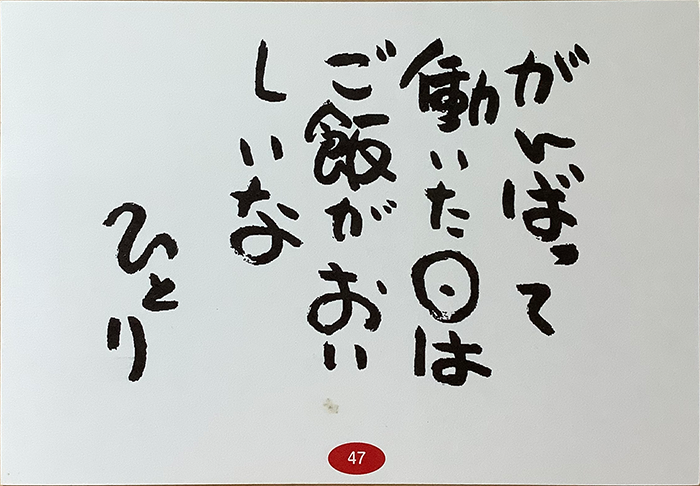 がんばって
働いた日は
ご飯がおい
しいな
ひとり
47